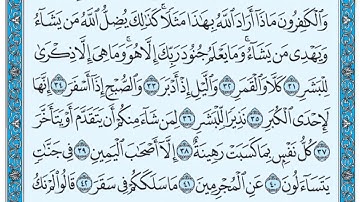 وَٱلْكَٰفِرُونَ مَاذَآ أَرَادَ ٱللَّهُ بِهَٰذَا مَثَلًا ۚ كَذَٰلِكَ يُضِلُّ ٱللَّهُ مَن يَشَآءُ
وَيَهْدِى مَن يَشَآءُ ۚ وَمَا يَعْلَمُ جُنُودَ رَبِّكَ إِلَّا هُوَ ۚ وَمَا هِىَ إِلَّا ذِكْرَىٰ
لِلْبَشَرِ ٣١ كَلَّا وَٱلْقَمَرِ ٣٢ وَٱلَّيْلِ إِذْ أَدْبَرَ ٣٣ وَٱلصُّبْحِ إِذَآ أَسْفَرَ ٣٤ إِنَّهَا
لَإِحْدَى ٱلْكُبَرِ ٣٥ نَذِيرًا لِّلْبَشَرِ ٣٦ لِمَن شَآءَ مِنكُمْ أَن يَتَقَدَّمَ أَوْ يَتَأَخَّرَ
٣٧ كُلُّ نَفْسٍۭ بِمَا كَسَبَتْ رَهِينَةٌ ٣٨ إِلَّآ أَصْحَٰبَ ٱلْيَمِينِ ٣٩ فِى جَنَّٰتٍ
يَتَسَآءَلُونَ ٤٠ عَنِ ٱلْمُجْرِمِينَ ٤١ مَا سَلَكَكُمْ فِى سَقَرَ ٤٢ قَالُوا۟ لَمْ نَكُ